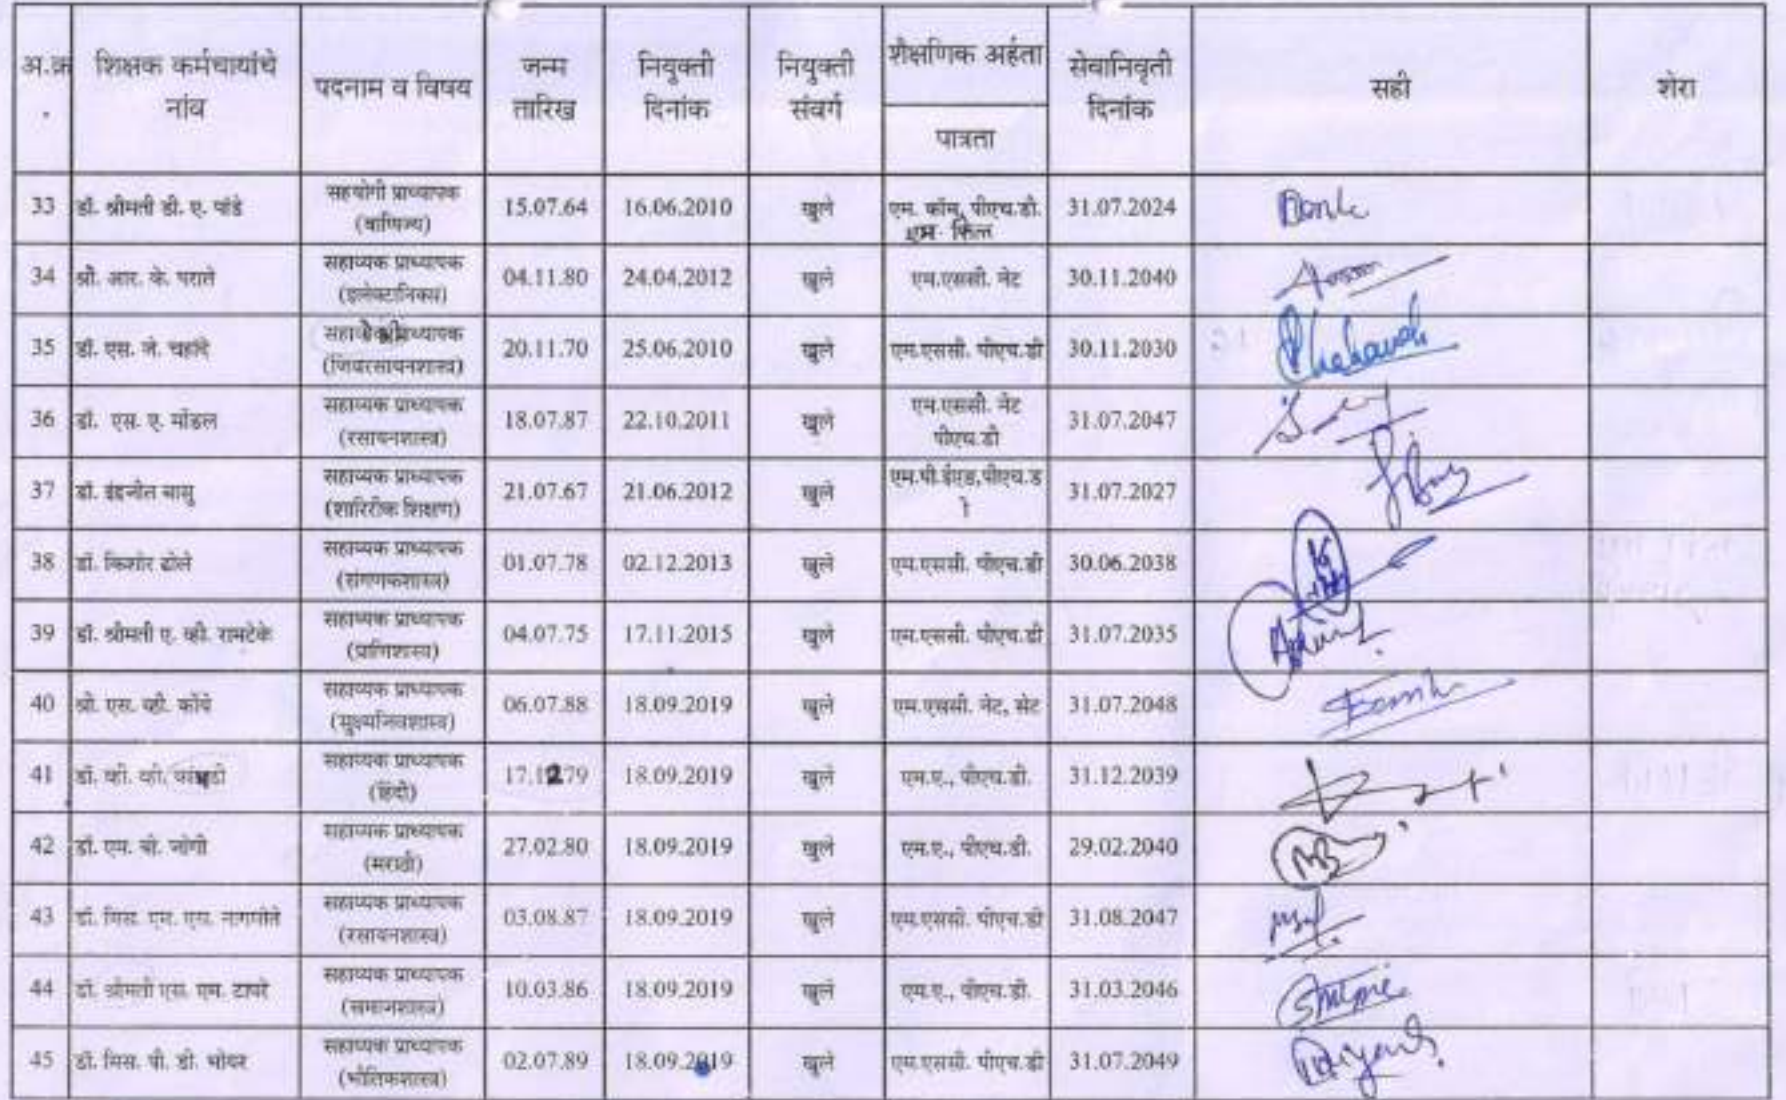 अ.क्र. शिक्षक कर्मचाऱ्यांचे नांव पदनाम व विषय जन्म तारिख नियुक्ती दिनांक नियुक्ती संवर्ग शैक्षणिक अर्हता पात्रता सेवानिवृती दिनांक सही शेरा
33 डॉ. श्रीमती डी. ए. पांडे सहयोगी प्राध्यापक (वाणिज्य) 15.07.64 16.06.2010 खुले एम. कॉम, पीएच.डी. एम. फिल 31.07.2024
34 श्री. आर. के. पराते सहाय्यक प्राध्यापक (इलेक्टानिक्स) 04.11.80 24.04.2012 खुले एम.एससी. नेट 30.11.2040
35 डॉ. एस. जे. चहांदे (जिवरसायनशास्त्र) 20.11.70 25.06.2010 खुले एम.एससी. पीएच.डी 30.11.2030
36 डॉ. एस. ए. मोंडल सहाय्यक प्राध्यापक (रसायनशास्त्र) 18.07.87 22.10.2011 खुले एम.एससी. नेट पीएच.डी 31.07.2047
37 डॉ. इंद्रजीत बासु सहाय्यक प्राध्यापक (शारिरीक शिक्षण) 21.07.67 21.06.2012 खुले एम.पी.ईएड,पीएच.डी 31.07.2027
38 डॉ. किशोर ढोले सहाय्यक प्राध्यापक (संगणकशास्त्र) 01.07.78 02.12.2013 खुले एम.एससी. पीएच.डी 30.06.2038
39 डॉ. श्रीमती ए. व्ही. रामटेके सहाय्यक प्राध्यापक (प्राणिशास्त्र) 04.07.75 17.11.2015 खुले एम.एससी. पीएच.डी 31.07.2035
40 श्री. एस. व्ही. सहाय्यक प्राध्यापक (सुक्ष्मजिवशास्त्र) 06.07.88 18.09.2019 खुले एम.एससी. नेट, सेट 31.07.2048
41 डॉ. व्ही. व्ही. सहाय्यक प्राध्यापक (हिंदी) 17.12.79 18.09.2019 खुले एम.ए., पीएच.डी. 31.12.2039
42 डॉ. एम. बी. जोगी सहाय्यक प्राध्यापक (मराठी) 27.02.80 18.09.2019 खुले एम.ए., पीएच.डी. 29.02.2040
43 डॉ. मिस. एम. एस. नागमोते सहाय्यक प्राध्यापक (रसायनशास्त्र) 03.08.87 18.09.2019 खुले एम.एससी. पीएच.डी 31.08.2047
44 डॉ. श्रीमती एस. एम. टापरे सहाय्यक प्राध्यापक (समाजशास्त्र) 10.03.86 18.09.2019 खुले एम.ए., पीएच.डी. 31.03.2046
45 डॉ. मिस. पी. डी. भोयर सहाय्यक प्राध्यापक (भौतिकशास्त्र) 02.07.89 18.09.2019 खुले एम.एससी. पीएच.डी 31.07.2049